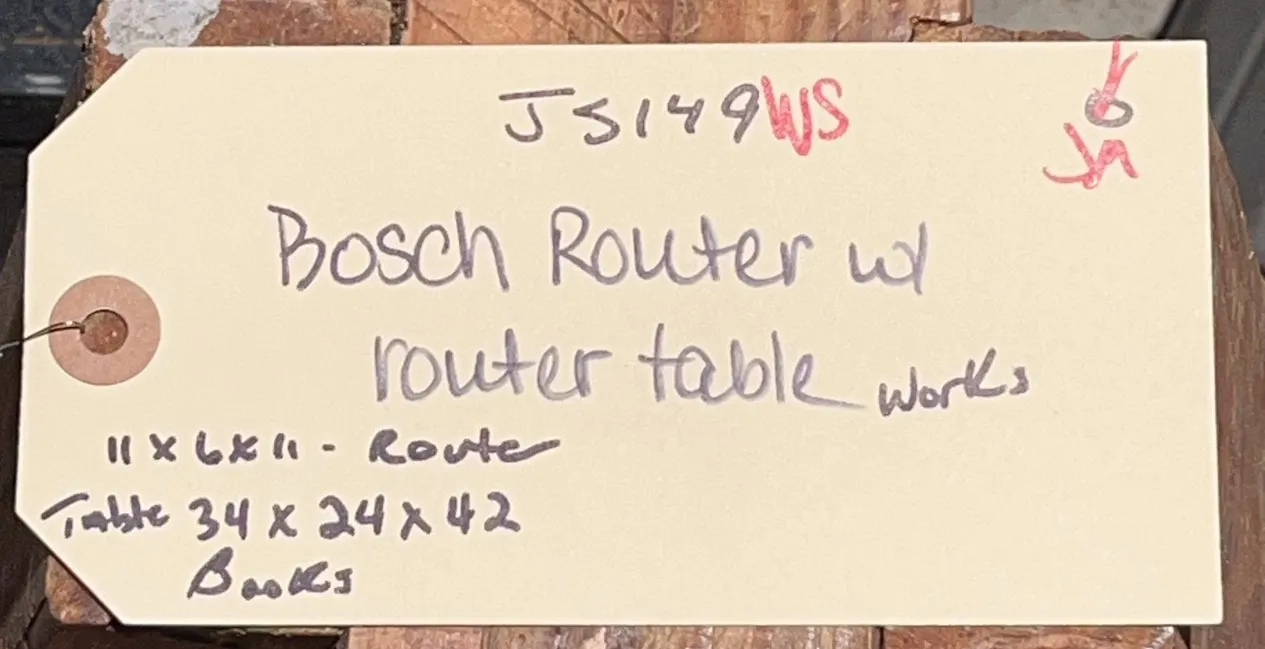 JS149WS
6
JA
Bosch Router w/
router table works
11 x 6 x 11 - Router
Table 34 x 24 x 42
Books